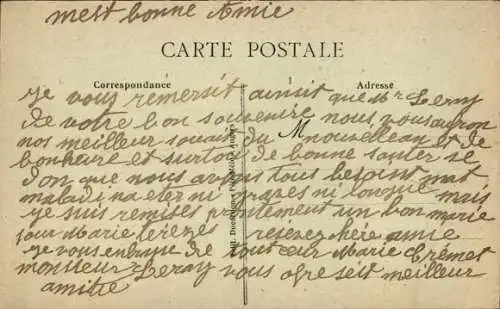 mest bonne Amie
CARTE POSTALE
Correspondance
Adresse
je vous remersit ainsit que Mr Leray
de votre bon souvenire nous vous auron
nos meilleur souait du nouvellean et de
M
bonheure et surtout de bonne santer se
don que nous avons tous besoint mat
maladi na eter ni graves ni longue mais
je suis remises prontement un bon marie
pour Marie terezes resevez chere amie
je vous enbrase de tout ceur Marie Crémet
monsieur Leray vous ofre seit meilleur
amitie